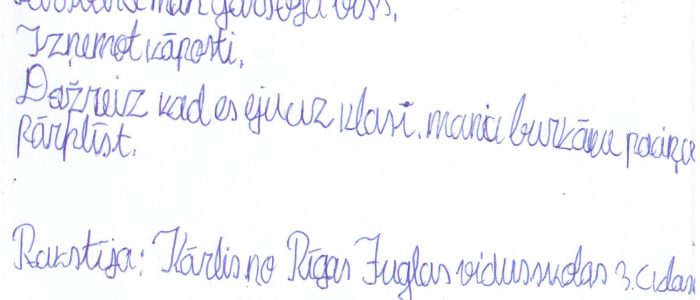 man garšoja viss.
Izņemot kāposti.
Dažreiz kad es eju uz klasi, mani burkānu
Pārplīst.
Rakstīja: Kārlis no Rīgas Juglas vidusskolas 3.c klas